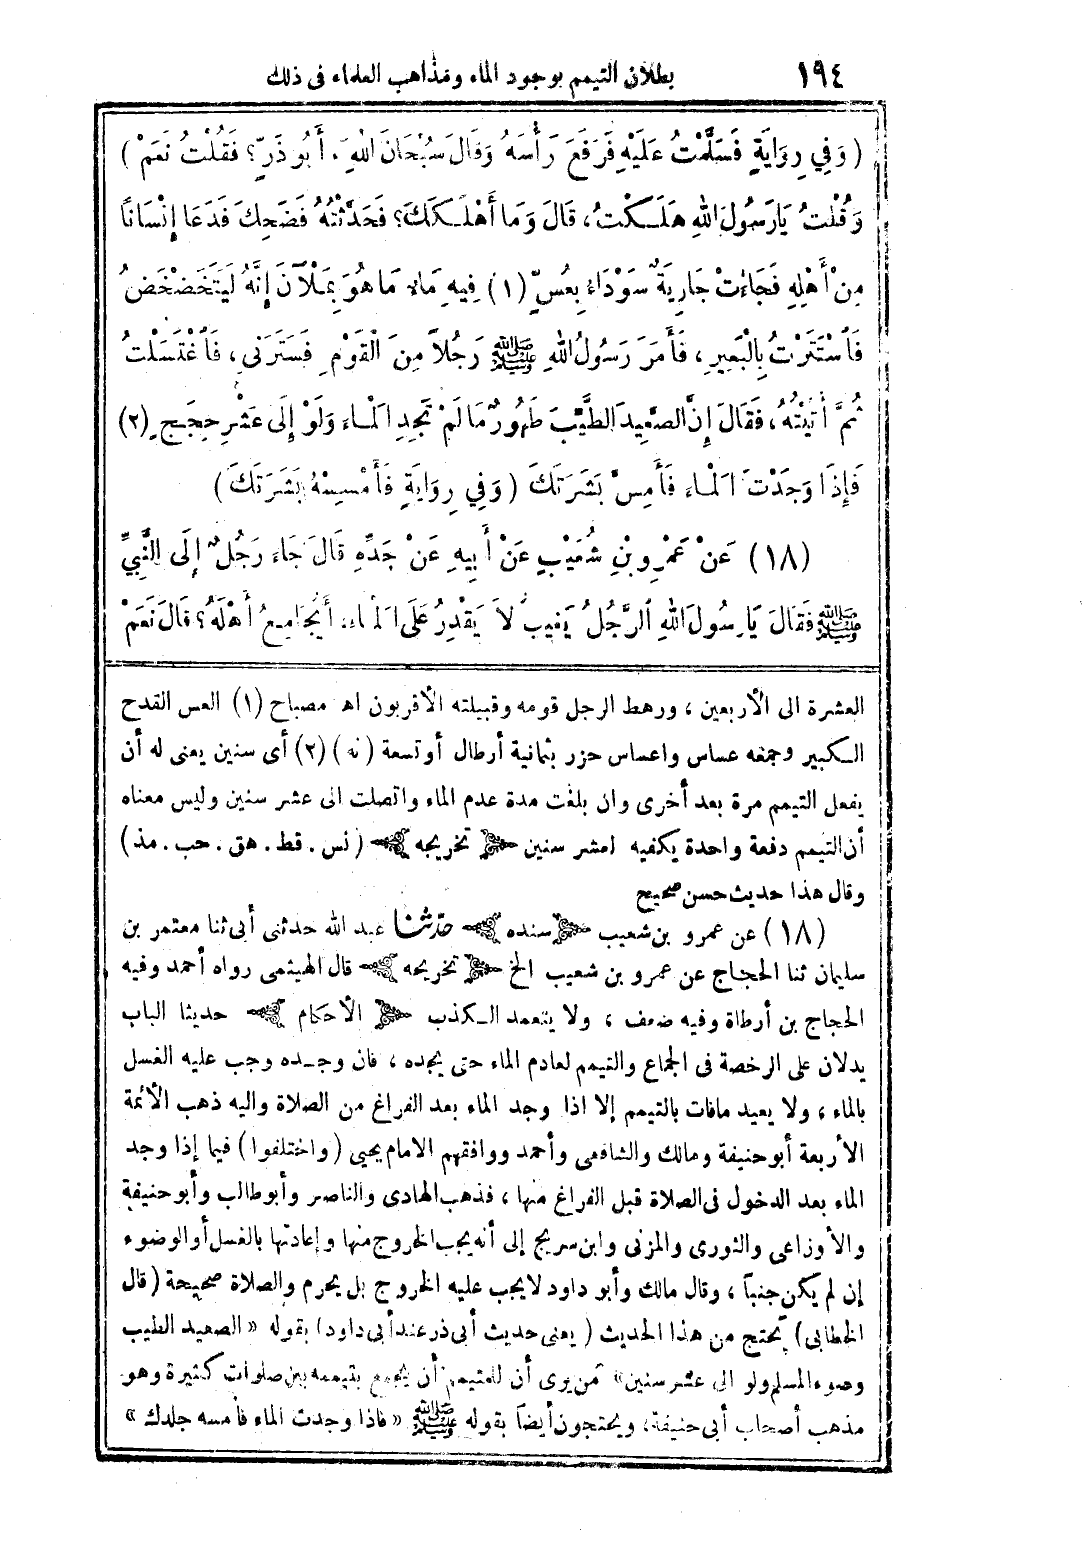 ١٩٤ بطلان التيمم بوجود الماء ومذاهب العلماء فى ذلك
( وَفِي رِوَايَةٍ فَسَلَّمْتُ عَلَيْهِ فَرَفَعَ رَأْسَهُ وَقَالَ سُبْحَانَ اللهِ ، أَبُو ذَرٍّ؟ فَقُلْتُ نَعَمْ )
وَقُلْتُ يَارَسُولَ اللهِ هَلَكْتُ، قَالَ وَمَا أَهْلَكَكَ؟ فَحَدَّثْتُهُ فَضَحِكَ فَدَعَا إِنْسَانًا
مِنْ أَهْلِهِ فَجَاءَتْ جَارِيَةٌ سَوْدَاءُ بِعُسٍّ (١) فِيهِ مَاءٌ مَا هُوَ بِمَلْآنَ إِنَّهُ لَيَتَخَضْخَضُ
فَاسْتَتَرْتُ بِالْبَعِيرِ، فَأَمَرَ رَسُولُ اللهِ ﷺ رَجُلاً مِنَ الْقَوْمِ فَسَتَرَنِى، فَاغْتَسَلْتُ
ثُمَّ أَتَيْتُهُ، فَقَالَ إِنَّ الصَّعِيدَ الطَّيِّبَ طَهُورٌ مَا لَمْ تَجِدِ الْمَاءَ وَلَوْ إِلَى عَشْرِ حِجَجٍ (٢)
فَإِذَا وَجَدْتَ الْمَاءَ فَأَمِسَّ بَشَرَتَكَ ( وَفِي رِوَايَةٍ فَأَمْسِسْهُ بَشَرَتَكَ )
(١٨) عَنْ عَمْرِو بْنِ شُعَيْبٍ عَنْ أَبِيهِ عَنْ جَدِّهِ قَالَ جَاءَ رَجُلٌ إِلَى النَّبِيِّ
ﷺ فَقَالَ يَا رَسُولَ اللهِ الرَّجُلُ يَغِيبُ لاَ يَقْدِرُ عَلَى الْمَاءِ، أَيُجَامِعُ أَهْلَهُ؟ قَالَ نَعَمْ
العشرة الى الأربعين ، ورهط الرجل قومه وقبيلته الأقربون اه مصباح (١) العس القدح
الكبير وجمعه عساس واعساس حزر بثمانية أرطال أو تسعة (نه) (٢) أى سنين يعنى له أن
يفعل التيمم مرة بعد أخرى وان بلغت مدة عدم الماء واتصلت الى عشر سنين وليس معناه
أن التيمم دفعة واحدة يكفيه لعشر سنين ﴿ تخريجه ﴾ (نس . قط . هق . حب . مذ)
وقال هذا حديث حسن صحيح
(١٨) عن عمرو بن شعيب ﴿ سنده ﴾ حدثنا عبد الله حدثنى أبى ثنا معتمر بن
سليمان ثنا الحجاج عن عمرو بن شعيب الخ ﴿ تخريجه ﴾ قال الهيثمى رواه أحمد وفيه
الحجاج بن أرطاة وفيه ضعف ، ولا يتعمد الكذب ﴿ الأحكام ﴾ حديثا الباب
يدلان على الرخصة فى الجماع والتيمم لعادم الماء حتى يجده ، فان وجده وجب عليه الغسل
بالماء ، ولا يعيد مافات بالتيمم إلا اذا وجد الماء بعد الفراغ من الصلاة واليه ذهب الأئمة
الأربعة أبو حنيفة ومالك والشافعى وأحمد ووافقهم الامام يحيى (واختلفوا) فيما إذا وجد
الماء بعد الدخول فى الصلاة قبل الفراغ منها ، فذهب الهادى والناصر وأبو طالب وأبو حنيفة
والأوزاعى والثورى والمزنى وابن سريج إلى أنه يجب الخروج منها وإعادتها بالغسل أو الوضوء
إن لم يكن جنباً ، وقال مالك وأبو داود لا يجب عليه الخروج بل يحرم والصلاة صحيحة (قال
الخطابى) يحتج من هذا الحديث ( يعنى حديث أبى ذر عند أبى داود) بقوله « الصعيد الطيب
وضوء المسلم ولو الى عشر سنين» مَن يرى أن للمتيمم أن يجمع بتيممه بين صلوات كثيرة وهو
مذهب أصحاب أبى حنيفة، ويحتجون أيضاً بقوله ﷺ « فاذا وجدت الماء فأمسه جلدك »